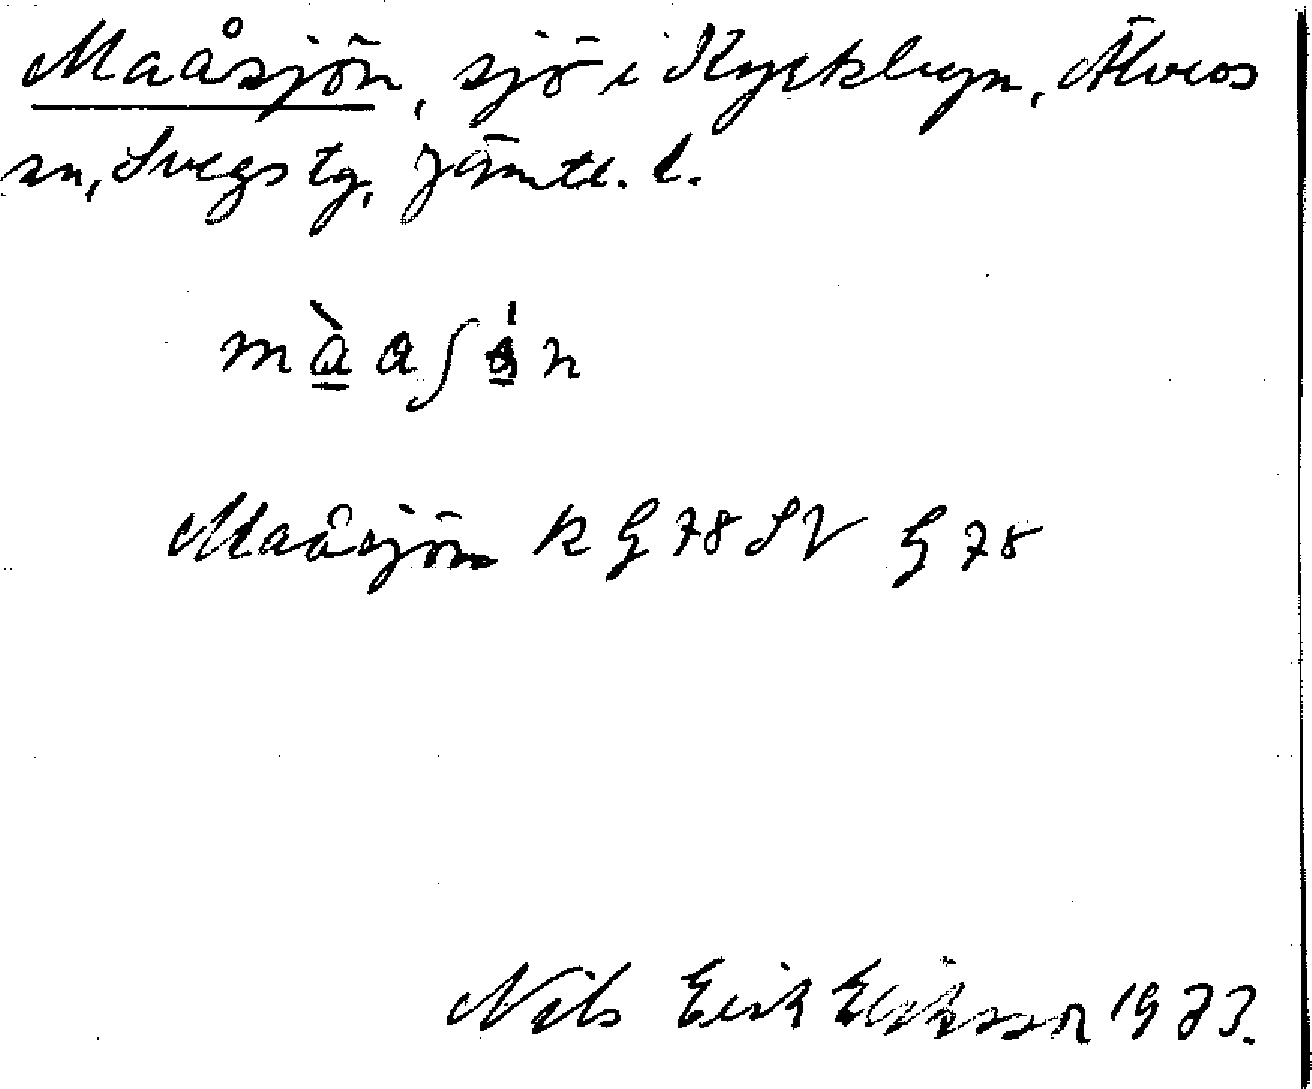 Maåsjön, sjö i Kyrkbyn, Älvros
sn, Svegs tg, Jämtl. l.
Maåsjön R G 78 SV G 78
Nils Erik Eriksson 1973.